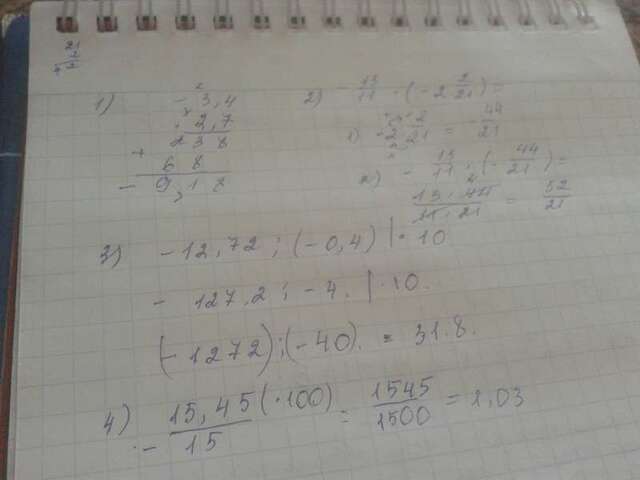 21
2
42
1) - 3,4
2,7
238
+ 68
- 9,18
2) - 13/11 · (-2 2/21) =
1) -2 2/21 = - 44/21
2) - 13/11 · (- 44/21) =
13·44/11·21 = 52/21
3) -12,72 : (-0,4) | ·10
- 127,2 : -4. | ·10.
(-1272):(-40). = 31.8.
4) - 15,45 (·100)/15 = 1545/1500 = 1,03